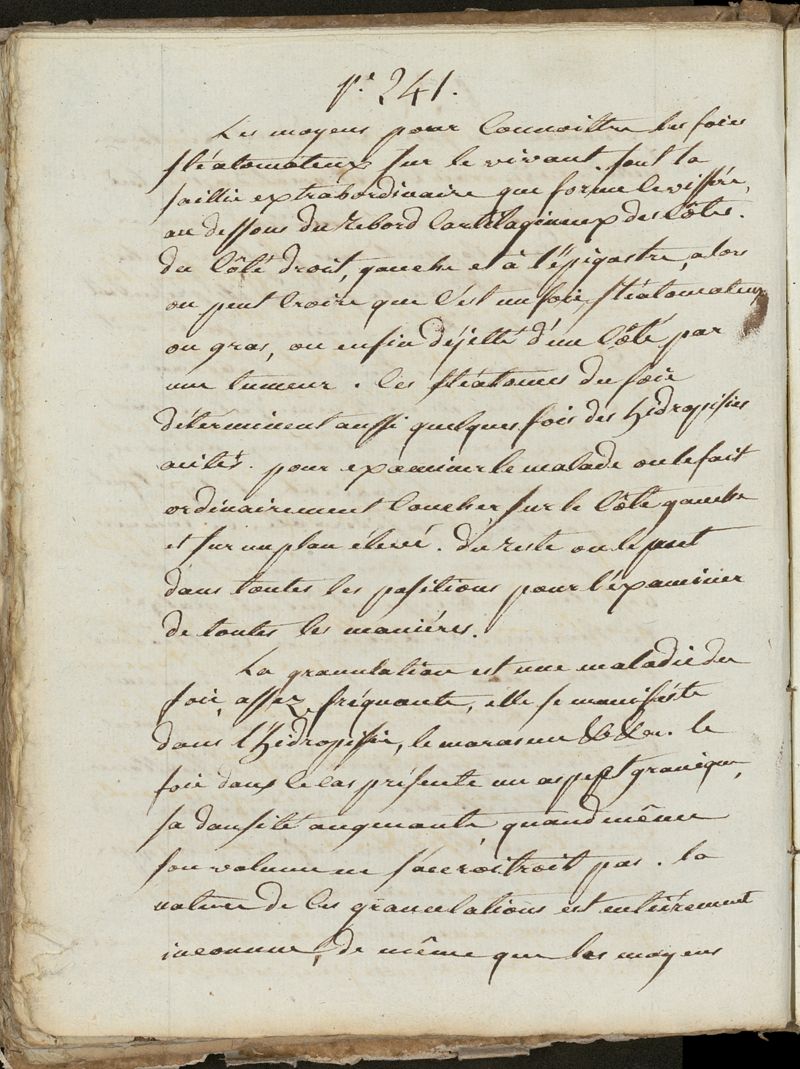 p.e 241.
Les moyens pour Connoittre les foies
stéatomateux sur le vivant sont la
saillie extraordinaire que forme le vissére,
au dessous du rebord Cartilagineux des Côtes.
du Côté droit, gauche et à l'épigastre, alors
on peut Croire que C'est un foie stéatomateux
ou gras, ou enfin déjetté d'un Côté par
une tumeur. les stéatomes du foie
déterminent aussi quelques fois des hidropisies
acites. pour examiner le malade on le fait
ordinairement Coucher sur le Côté gauche
et sur un plan élevé. du reste on le met
dans toutes les positions pour l'éxaminer
de toutes les maniéres.
La granulation est une maladie du
foie, assez fréquante, elle se manifeste
dans l'hidropisie, le marasme &c &c. le
foie dans le cas présente un aspect granique,
sa dansité augmante, quand même
son volume ne s'accroitroit pas. la
nature de Ces granulations est entiérement
inconnue, de même que les moyens